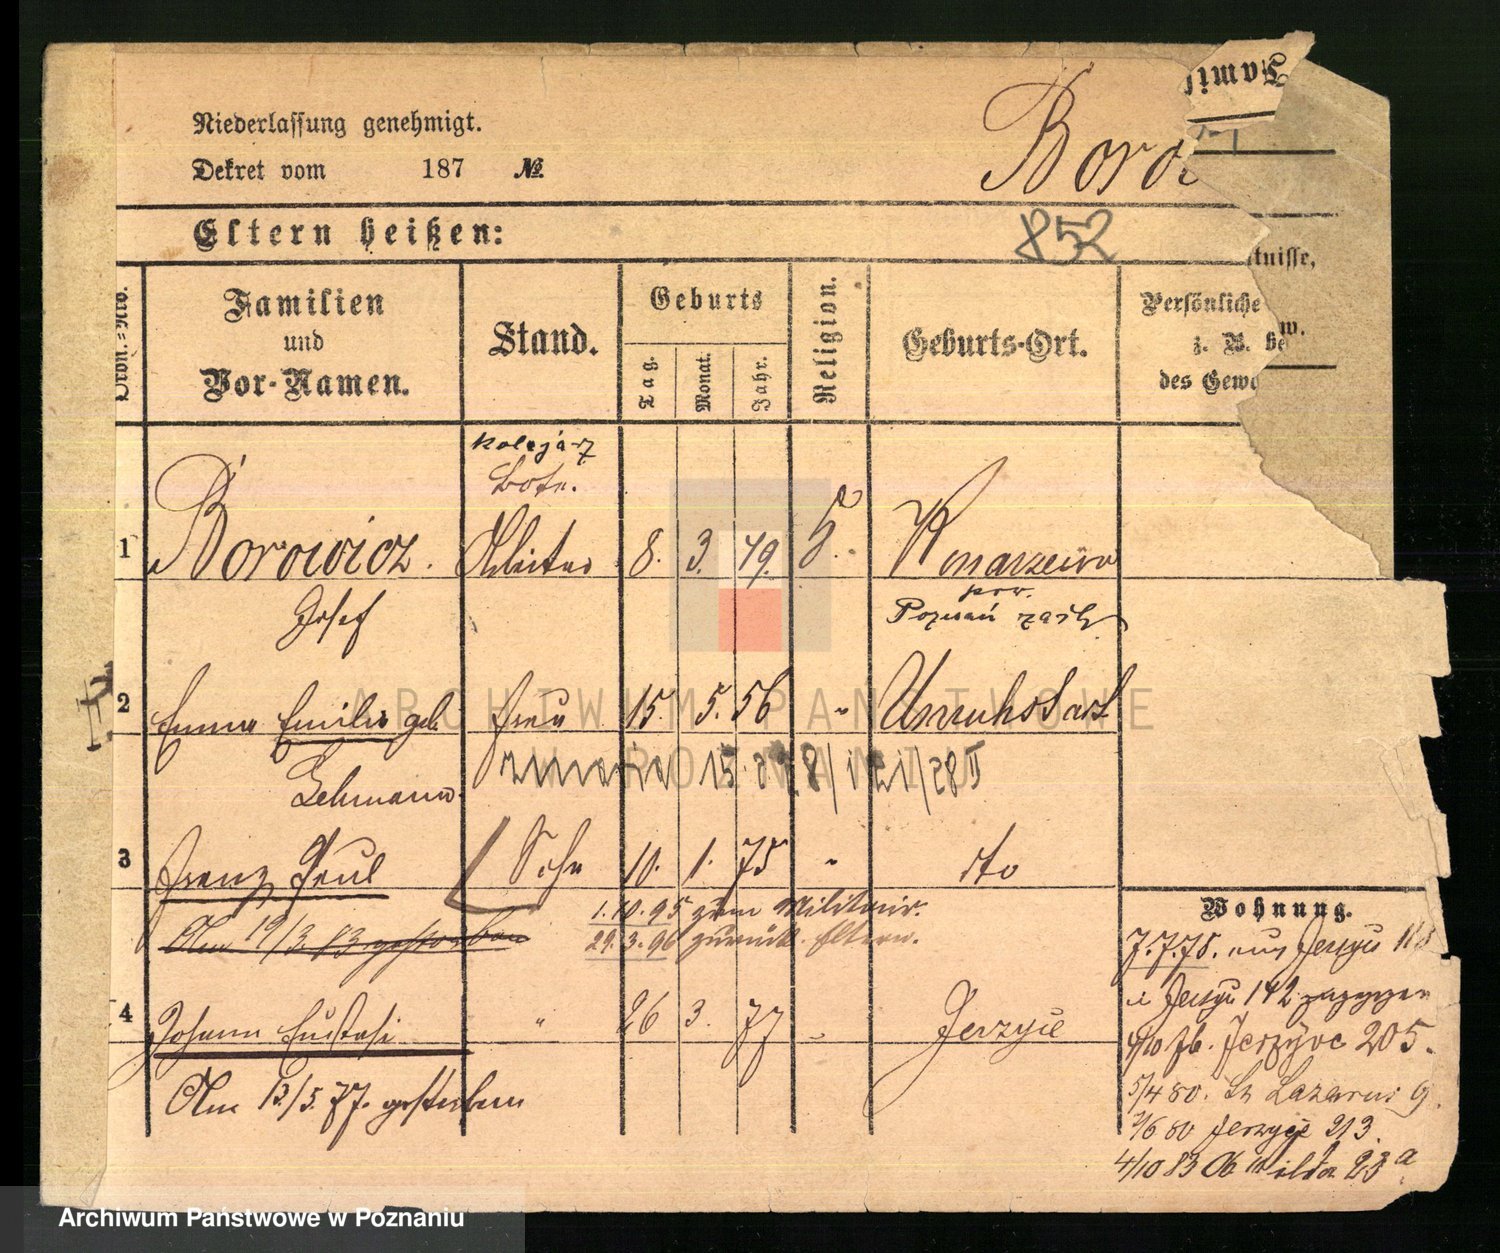 Famil
Niederlassung genehmigt.
Dekret vom 187 №
Boro
Eltern heißen:
852
tnisse,
Ordn.-Nro.
Familien
und
Vor-Namen.
Stand.
Geburts
Tag.
Monat.
Jahr.
Religion.
Geburts-Ort.
Persönliche
z. B. be w.
des Gewe
kolejarz
Bote.
1 Borowicz. Arbeiter 8. 3. 49. Konarzewo
Josef pow.
Poznań zach
2 Emma Emilie geb. Frau 15. 5. 56 " Unruhstadt
Lehmann. zmarła 15. 28
3 Franz Paul Sohn 10. 1. 75 " dto
1.10.95 zum Militair.
Am 19/3. 83 gestorben 29.3.96 zurück. Eltern.
4 Johann Eustasi " 26 3. 77 " Jerzyce
Am 13/5. 77. gestorben
Wohnung.
7.7.78. aus Jersyce
Jersyce 142
4/10 76. Jerzyce 205.
5/4 80. St Lazarus 9.
7/6 80 Jerzyce 213.
4/10 83 Ob Wilda 23a
ARCHIWUM PAŃSTWOWE
W POZNANIU
Archiwum Państwowe w Poznaniu